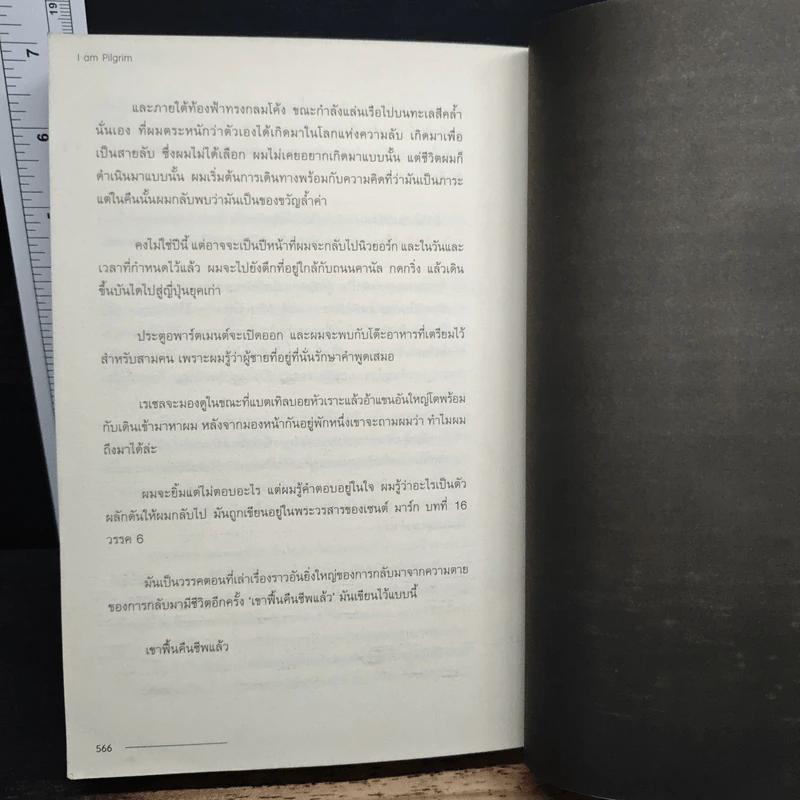 19
7
6
I am Pilgrim
และภายใต้ท้องฟ้าทรงกลมโค้ง ขณะกำลังแล่นเรือไปบนทะเลสีคล้ำ
นั่นเอง ที่ผมตระหนักว่าตัวเองได้เกิดมาในโลกแห่งความลับ เกิดมาเพื่อ
เป็นสายลับ ซึ่งผมไม่ได้เลือก ผมไม่เคยอยากเกิดมาแบบนั้น แต่ชีวิตผมก็
ดำเนินมาแบบนั้น ผมเริ่มต้นการเดินทางพร้อมกับความคิดที่ว่ามันเป็นภาระ
แต่ในคืนนั้นผมกลับพบว่ามันเป็นของขวัญล้ำค่า
คงไม่ใช่ปีนี้ แต่อาจจะเป็นปีหน้าที่ผมจะกลับไปนิวยอร์ก และในวันและ
เวลาที่กำหนดไว้แล้ว ผมจะไปยังตึกที่อยู่ใกล้กับถนนคานัล กดกริ่ง แล้วเดิน
ขึ้นบันไดไปสู่ญี่ปุ่นยุคเก่า
ประตูอพาร์ตเมนต์จะเปิดออก และผมจะพบกับโต๊ะอาหารที่เตรียมไว้
สำหรับสามคน เพราะผมรู้ว่าผู้ชายที่อยู่ที่นั่นรักษาคำพูดเสมอ
เรเชลจะมองดูในขณะที่แบตเทิลบอยหัวเราะแล้วอ้าแขนอันใหญ่โตพร้อม
กับเดินเข้ามาหาผม หลังจากมองหน้ากันอยู่พักหนึ่งเขาจะถามผมว่า ทำไมผม
ถึงมาได้ล่ะ
ผมจะยิ้มแต่ไม่ตอบอะไร แต่ผมรู้คำตอบอยู่ในใจ ผมรู้ว่าอะไรเป็นตัว
ผลักดันให้ผมกลับไป มันถูกเขียนอยู่ในพระวรสารของเซนต์ มาร์ก บทที่ 16
วรรค 6
มันเป็นวรรคตอนที่เล่าเรื่องราวอันยิ่งใหญ่ของการกลับมาจากความตาย
ของการกลับมามีชีวิตอีกครั้ง ‘เขาฟื้นคืนชีพแล้ว’ มันเขียนไว้แบบนี้
เขาฟื้นคืนชีพแล้ว
566